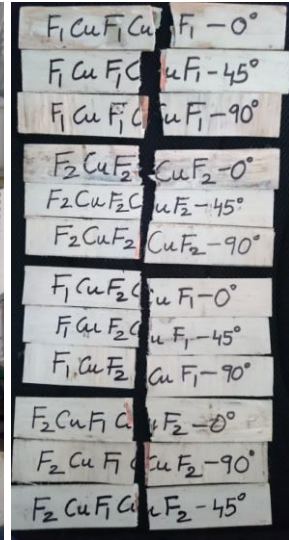 F₁ Cu F₁ Cu F₁ - 0°
F₁ Cu F₁ Cu F₁ - 45°
F₁ Cu F₁ Cu F₁ - 90°
F₂ Cu F₂ Cu F₂ - 0°
F₂ Cu F₂ Cu F₂ - 45°
F₂ Cu F₂ Cu F₂ - 90°
F₁ Cu F₂ Cu F₁ - 0°
F₁ Cu F₂ Cu F₁ - 45°
F₁ Cu F₂ Cu F₁ - 90°
F₂ Cu F₁ Cu F₂ - 0°
F₂ Cu F₁ Cu F₂ - 90°
F₂ Cu F₁ Cu F₂ - 45°